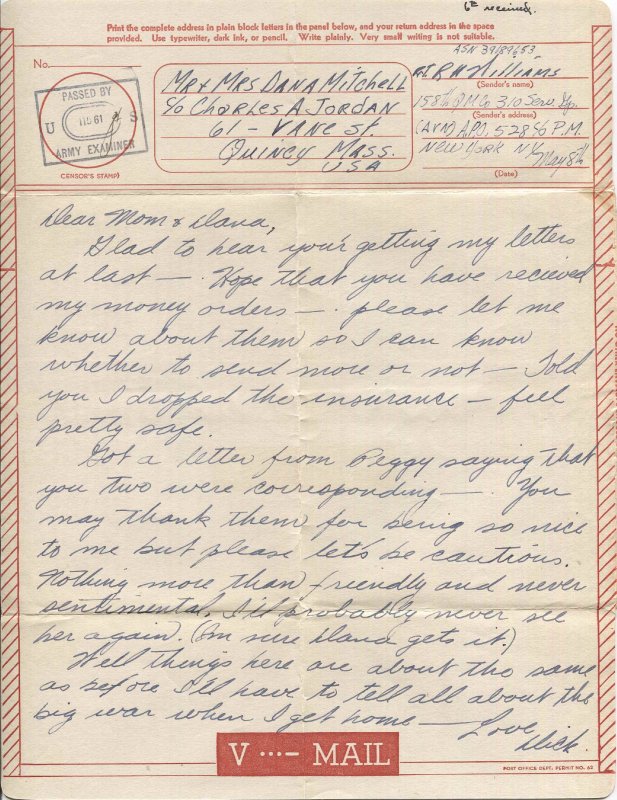 6th received.
Print the complete address in plain block letters in the panel below, and your return address in the space
provided. Use typewriter, dark ink, or pencil. Write plainly. Very small writing is not suitable.
No.
PASSED BY
U S
ARMY EXAMINER
(CENSOR'S STAMP)
Mr & Mrs Dana Mitchell
c/o Charles A Jordan
61 - Vane St.
Quincy Mass.
USA
ASN 39189653
R H Williams
(Sender's name)
158th QM Co 310 Serv. Gp.
(Sender's address)
(Avn) A.P.O. 528 c/o P.M.
New York NY
May 8th
(Date)
Dear Mom & Dana,
Glad to hear your getting my letters
at last —. Hope that you have recieved
my money orders —. please let me
know about them so I can know
whether to send more or not — Told
you I dropped the insurance — feel
pretty safe.
Got a letter from Peggy saying that
you two were corresponding —. You
may thank them for being so nice
to me but please let's be cautious.
Nothing more than friendly and never
sentimental. I'll probably never see
her again. (Im sure Dana gets it.)
Well things here are about the same
as before I'll have to tell all about the
big war when I get home — Love
Dick.
V ···— MAIL
POST OFFICE DEPT. PERMIT NO. 62